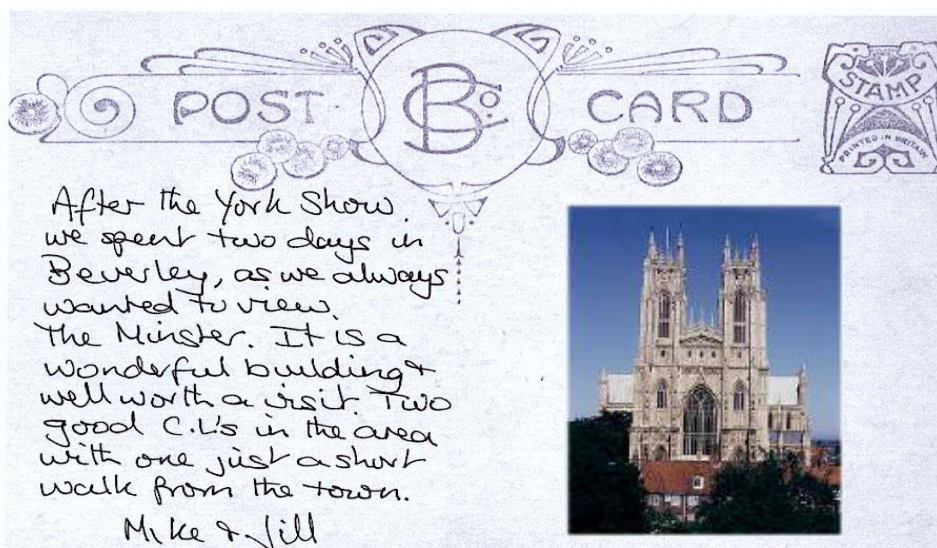 POST
BCo
CARD
STAMP
PRINTED IN BRITAIN
After the York Show.
we spent two days in
Beverley, as we always
wanted to view.
The Minster. It is a
wonderful building &
well worth a visit. Two
good C.L's in the area
with one just a short
walk from the town.
Mike & Jill